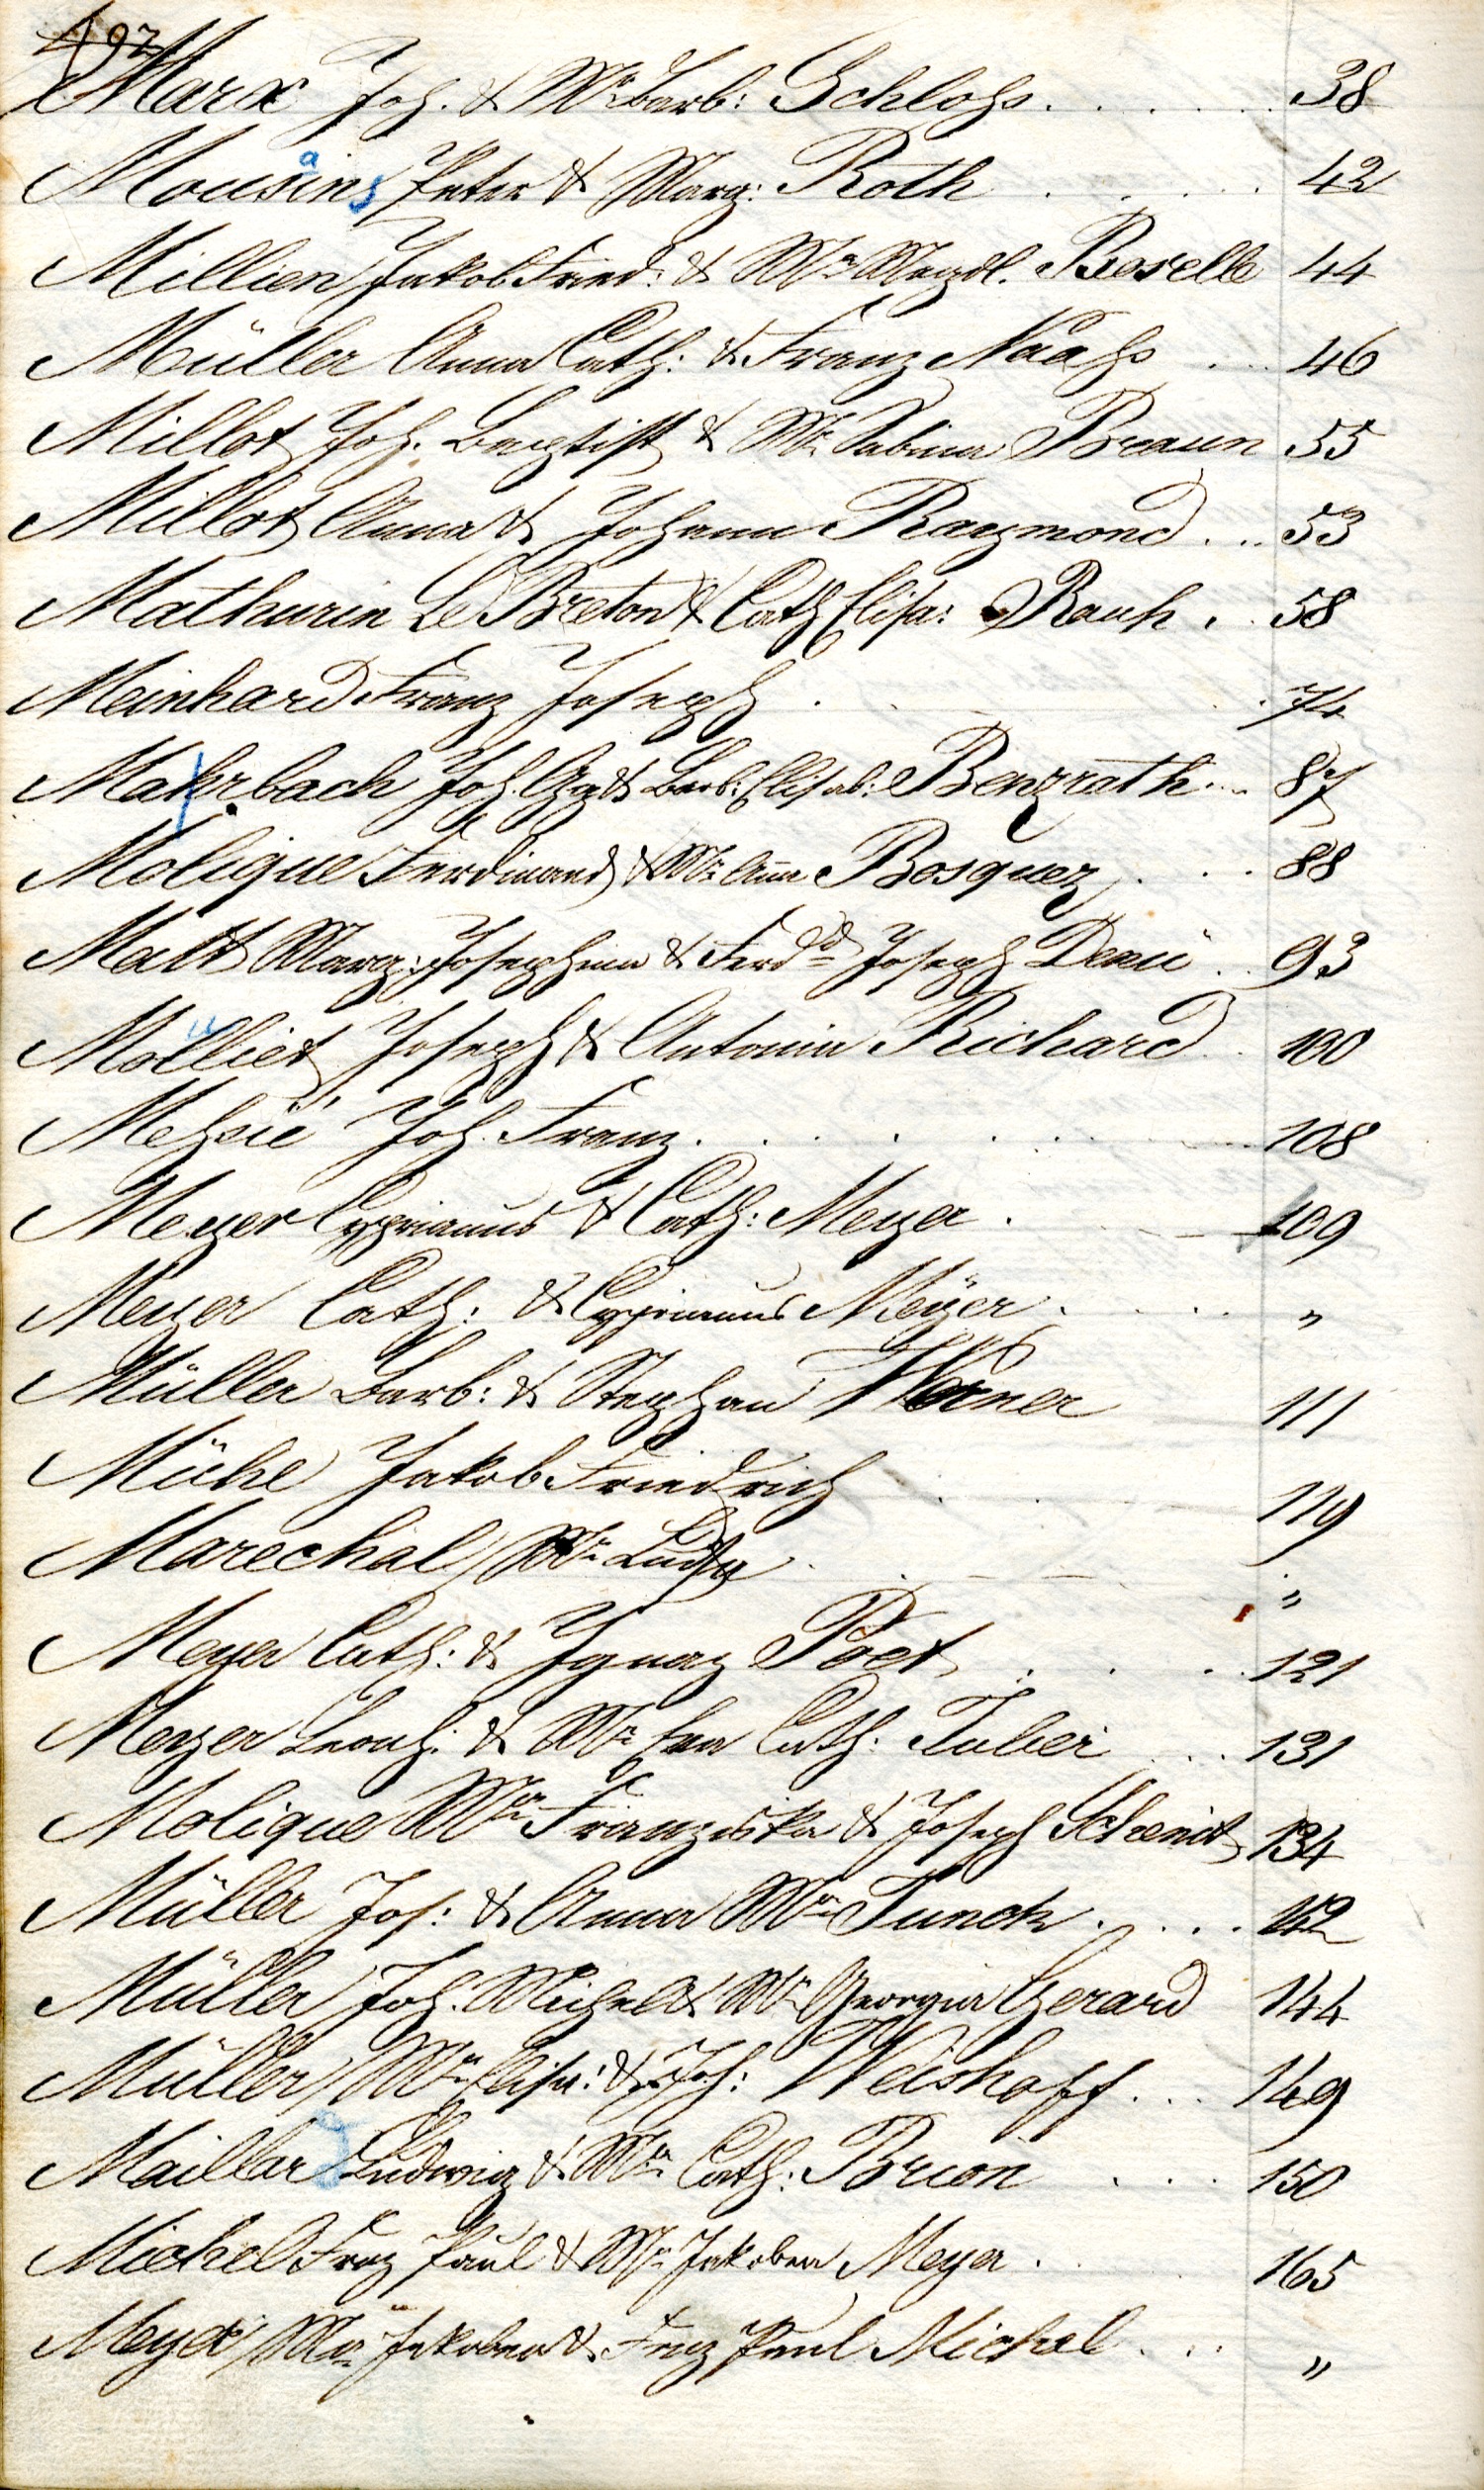 192
Marx Joh. & Mª Barb: Schloss. . . . . . 38
Mousins Peter & Marg: Roth . . . . 42
Millien Jakob Fried: & Mª Magdl. Boselle 44
Müller Anna Cath: & Franz Naahs . . . 46
Millot Joh. Baptist & Mª Sabina Braun 55
Millot Anna & Johann Raymond . . . 53
Mathurin Le Breton & Cath Elisa: Rauh . . 58
Meinhard Franz Joseph . . . . 74
Mahrbach Joh. Gg & Barb: Elisab: Benzrath . . . 87
Molique Ferdinand & Mª Ana Bosquez . . . 88
Matt Marg: Josephina & Ferdd Joseph Denü . . 93
Molliet Joseph & Antonia Richard . . 100
Mehsié Joh. Franz . . . . . . 108
Meyer Cyprianus & Cath: Meyer . . . 109
Meyer Cath: & Cyprianus Meÿer . . . . "
Müller Barb: & Stephan Werner 111
Mühe Jakob Friedrich . . 119
Marechal Mª Luisa . . . "
Meyer Cath: & Ignaz Poet . . . . 121
Meyer Leonh: & Mª Eva Cath: Tuber . . . 131
Molique Mª Franziska & Joseph Schmidt 134
Müller Jos: & Anna Mª Funck . . . . 142
Müller Joh. Michel & Mª Georgia Gerard 144
Müller Mª Elisa: & Joh: Weishoff . . . 149
Maillar Ludwig & Mª Cath: Brion . . . 150
Michel Frz Paul & Mª Jakobea Meyer . . 165
Meyer Mª Jakobea & Frz Paul Michel . . . "